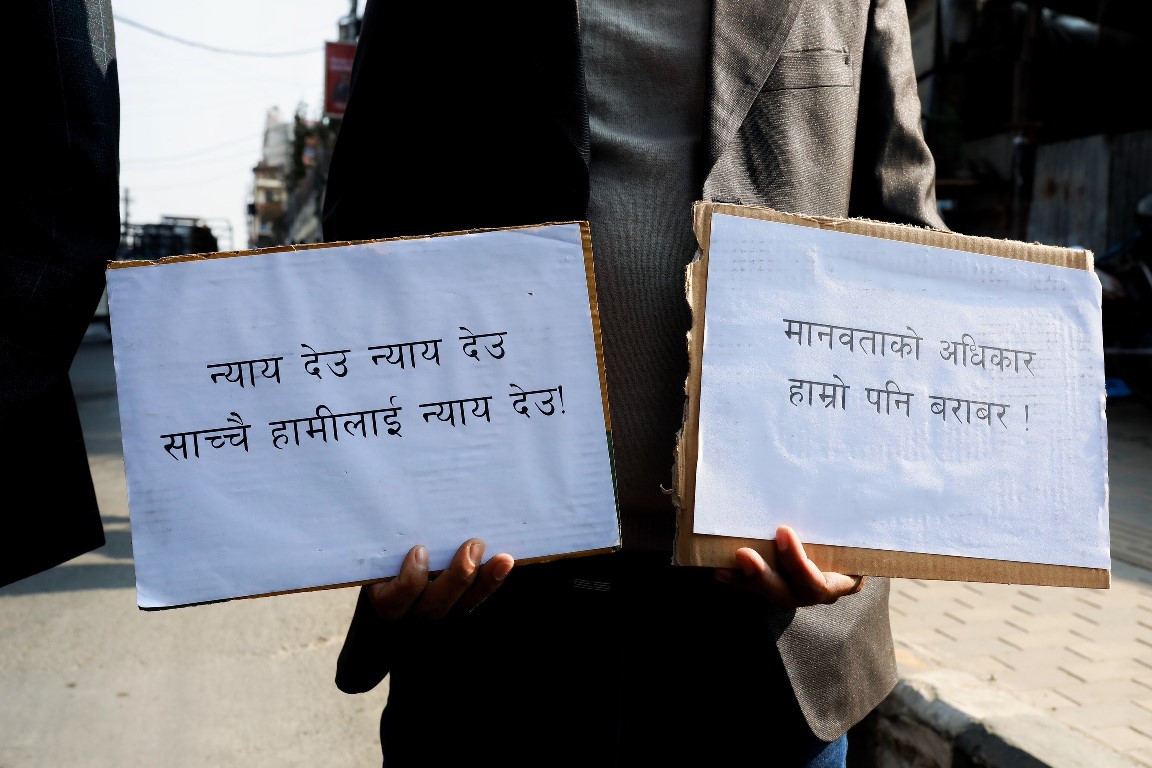 न्याय देउ न्याय देउ
साच्चै हामीलाई न्याय देउ!
मानवताको अधिकार
हाम्रो पनि बराबर !